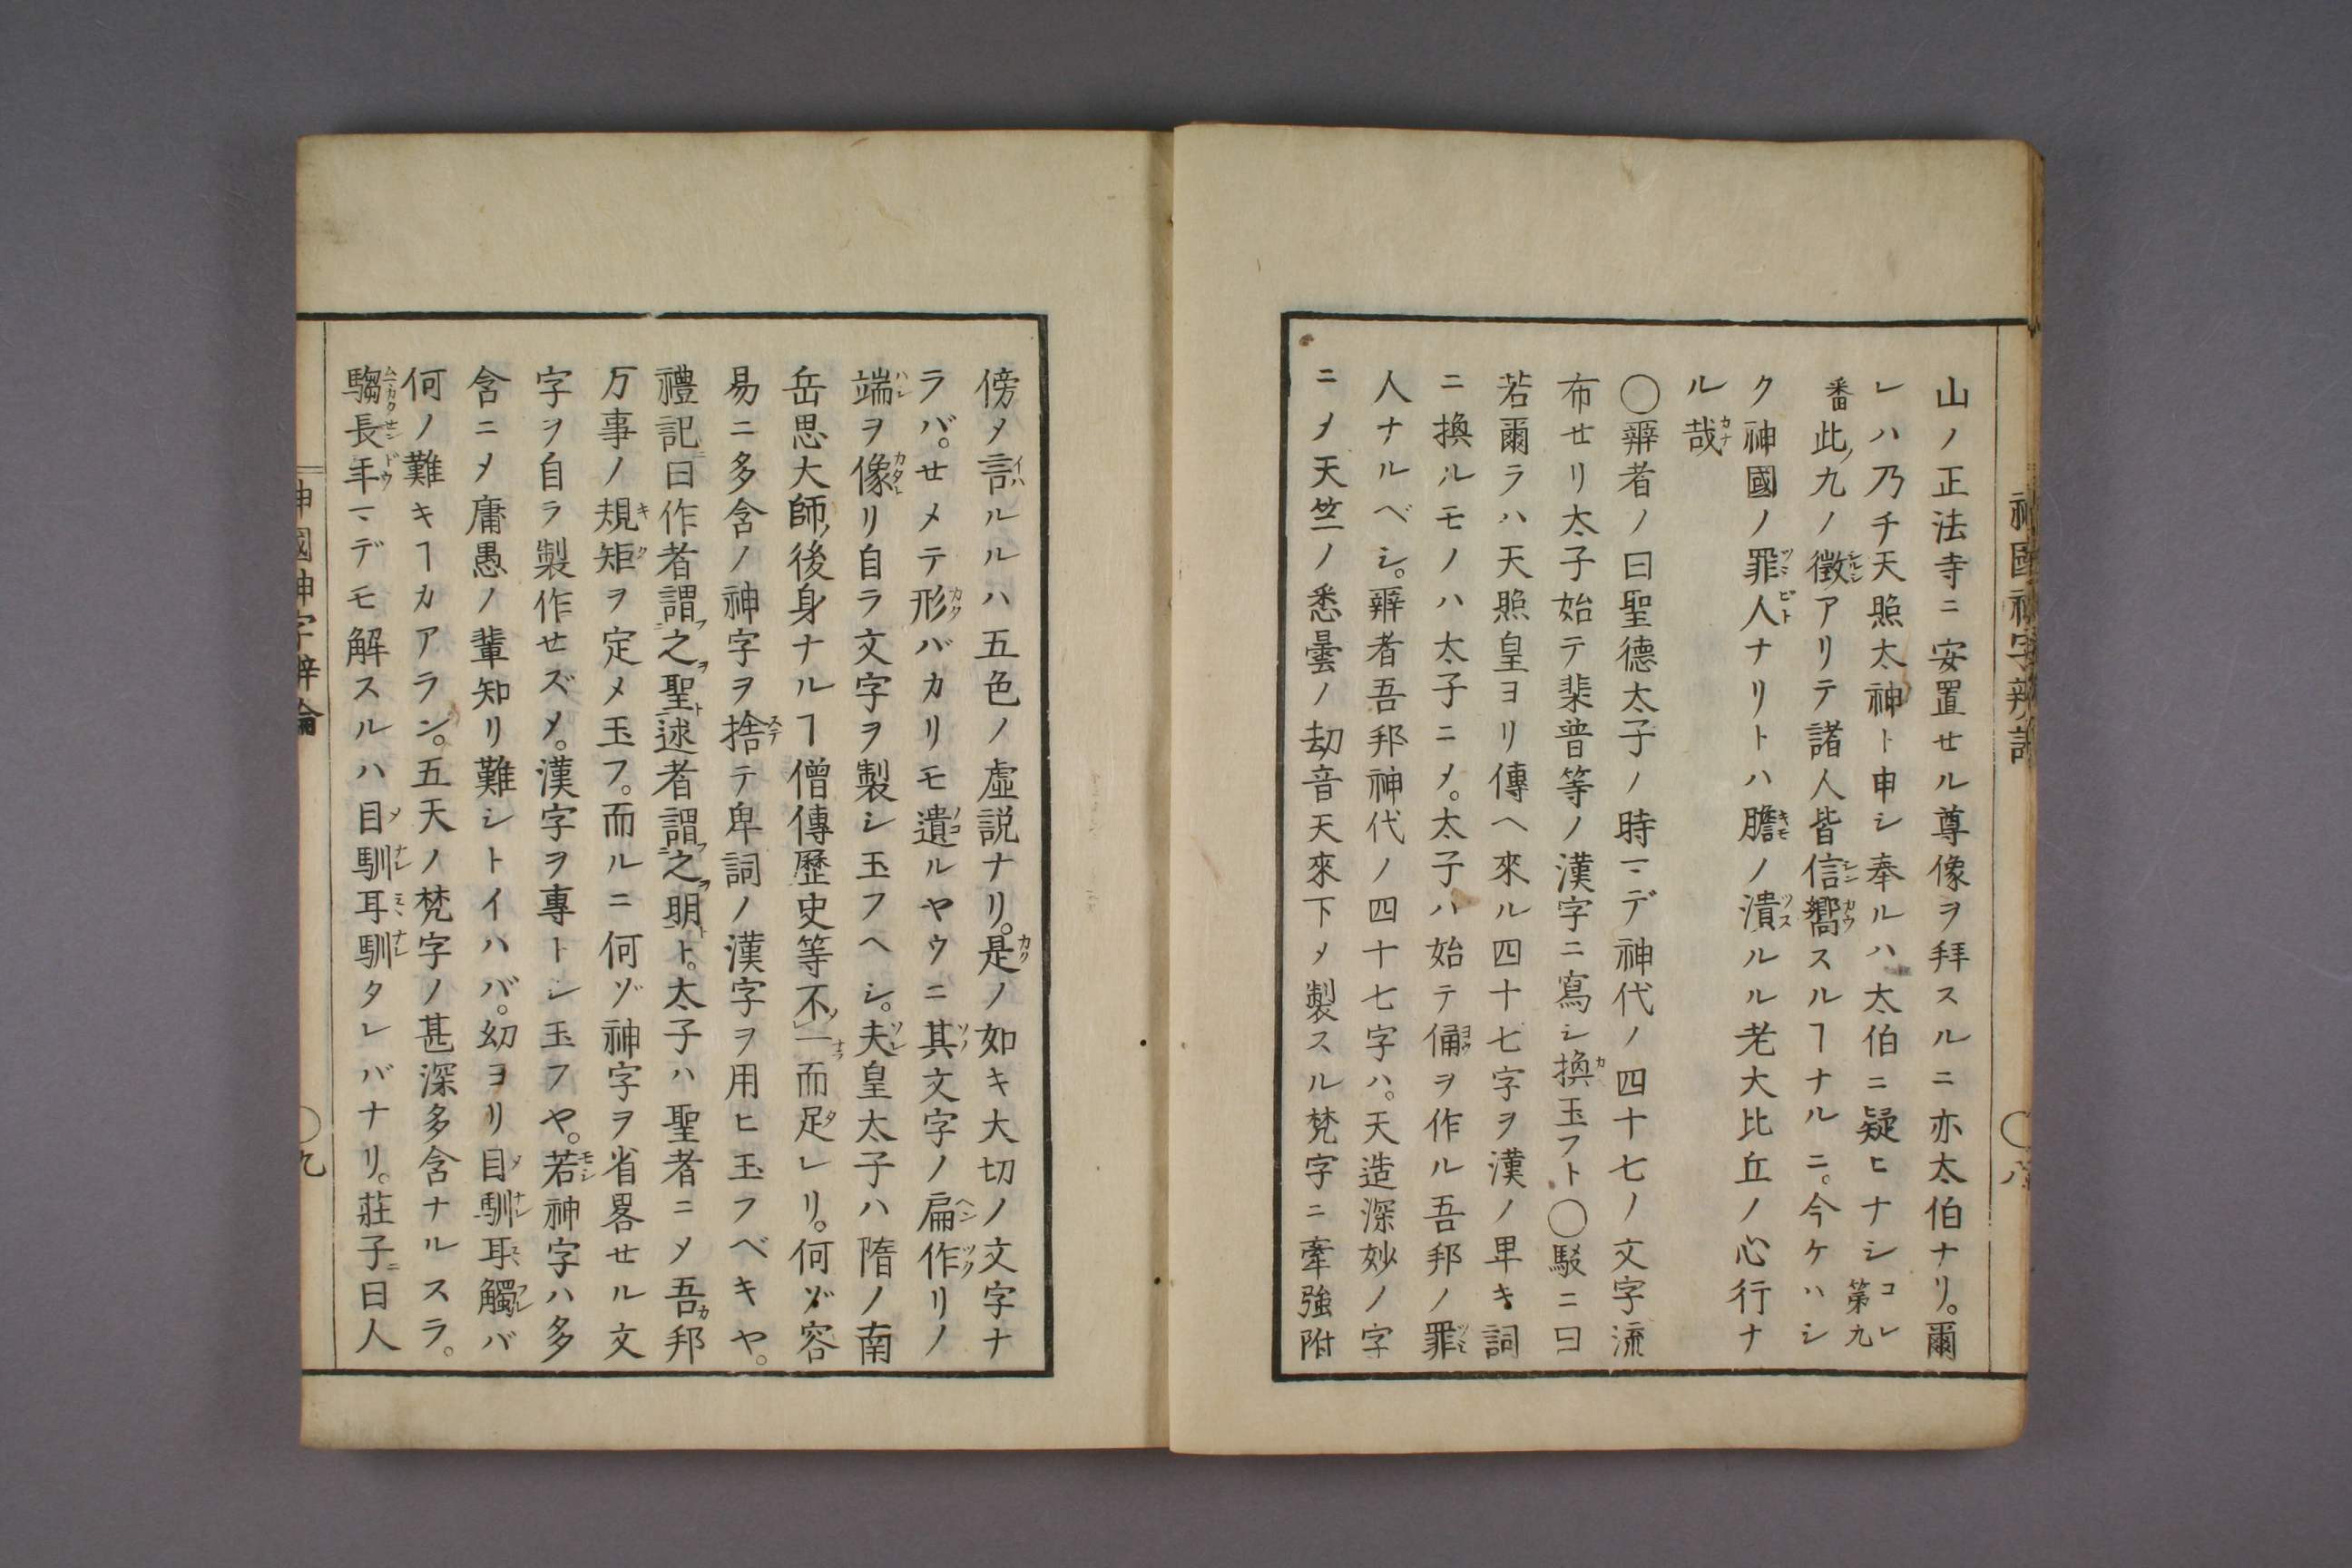 山ノ正法寺ニ安置セル尊像ヲ拜スルニ亦太伯ナリ。爾
レハ乃チ天照太神ト申シ奉ルハ太伯ニ疑ヒナシコレ第九
番此ノ九ノ徵アリテ諸人皆信嚮スルヿナルニ。今ケハシ
ク神國ノ罪人ナリトハ膽ノ潰ルル老大比丘ノ心行ナ
ル哉
〇辨者ノ曰聖德太子ノ時マデ神代ノ四十七ノ文字流
布セリ太子始テ棐普等ノ漢字ニ寫シ換玉フト〇駁ニ曰
若爾ラハ天照皇ヨリ傳ヘ來ル四十七字ヲ漢ノ卑キ詞
ニ換ルモノハ太子ニメ。太子ハ始テ俑ヲ作ル吾邦ノ罪
人ナルベシ。辨者吾邦神代ノ四十七字ハ。天造深妙ノ字
ニメ天竺ノ悉曇ノ劫音天來下メ製スル梵字ニ牽強附
傍メ言ルルハ五色ノ虛説ナリ。是ノ如キ大切ノ文字ナ
ラバ。セメテ形バカリモ遺ルヤウニ其文字ノ扁作リノ
端ヲ像リ自ラ文字ヲ製シ玉フヘシ。夫皇太子ハ隋ノ南
岳思大師ノ後身ナルヿ僧傳歷史等不一而足レリ。何ゾ容
易ニ多含ノ神字ヲ捨テ卑詞ノ漢字ヲ用ヒ玉フベキヤ。
禮記ニ曰作者謂之聖述者謂之明ト。太子ハ聖者ニメ吾邦
万事ノ規矩ヲ定メ玉フ。而ルニ何ゾ神字ヲ省畧セル文
字ヲ自ラ製作セズメ。漢字ヲ專トシ玉フヤ。若神字ハ多
含ニメ庸愚ノ輩知リ難シトイハバ。幼ヨリ目馴耳觸バ
何ノ難キヿカアラン。五天ノ梵字ノ甚深多含ナルスラ。
騶長年マデモ解スルハ目馴耳馴タレバナリ。莊子ニ曰人
神國神字辨論
〇九